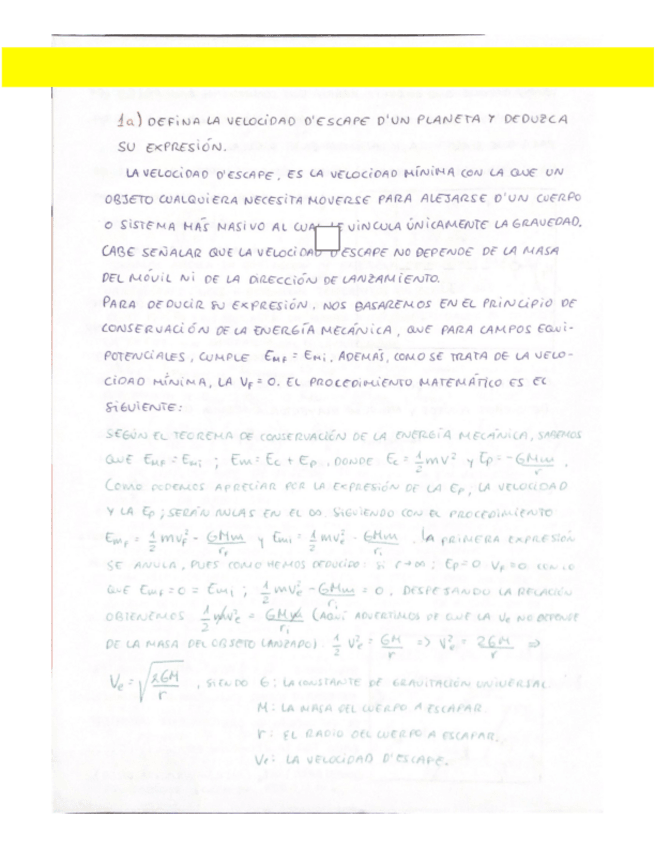 1a) DEFINA LA VELOCIDAD D'ESCAPE D'UN PLANETA Y DEDUZCA
SU EXPRESIÓN.
LA VELOCIDAD D'ESCAPE, ES LA VELOCIDAD MÍNIMA CON LA QUE UN
OBJETO CUALQUIERA NECESITA MOVERSE PARA ALEJARSE D'UN CUERPO
O SISTEMA MÁS MASIVO AL VINCULA ÚNICAMENTE LA GRAVEDAD.
CABE SEÑALAR QUE LA VELOCIDAD D'ESCAPE NO DEPENDE DE LA MASA
DEL MÓVIL NI DE LA DIRECCIÓN DE LANZAMIENTO.
PARA DEDUCIR SU EXPRESIÓN, NOS BASAREMOS EN EL PRINCIPIO DE
CONSERVACIÓN DE LA ENERGÍA MECÁNICA, QUE PARA CAMPOS EQUI-
POTENCIALES, CUMPLE EMF = EMi, ADEMÁS, COMO SE TRATA DE LA VELO-
CIDAD MÍNIMA, LA VF = 0. EL PROCEDIMIENTO MATEMÁTICO ES EL
SIGUIENTE:
SEGÚN EL TEOREMA DE CONSERVACIÓN DE LA ENERGÍA MECÁNICA, SABEMOS
QUE EMF = EMi ; Em = Ec + Ep, DONDE Ec = 1/2 mv² y Ep = -GMm/r.
COMO PODEMOS APRECIAR POR LA EXPRESIÓN DE LA Ep, LA VELOCIDAD
Y LA Ep; SERÁN NULAS EN EL ∞. SIGUIENDO CON EL PROCEDIMIENTO
Emf = 1/2 mvf² - GMm/rf y Emi = 1/2 mve² - GMm/ri. LA PRIMERA EXPRESIÓN
SE ANULA, PUES COMO HEMOS DEDUCIDO: si r→∞; Ep=0 VF=0 CON LO
QUE Emf = 0 = Emi ; 1/2 mve² - GMm/ri = 0. DESPEJANDO LA RELACIÓN
OBTENEMOS 1/2 mve² = GMm/ri (AQUÍ ADVERTIMOS DE QUE LA Ve NO DEPENDE
DE LA MASA DEL OBJETO LANZADO). 1/2 Ve² = GM/r => Ve² = 2GM/r =>
Ve = √(2GM/r), SIENDO G: LA CONSTANTE DE GRAVITACIÓN UNIVERSAL.
M: LA MASA DEL CUERPO A ESCAPAR.
r: EL RADIO DEL CUERPO A ESCAPAR.
Ve: LA VELOCIDAD D'ESCAPE.